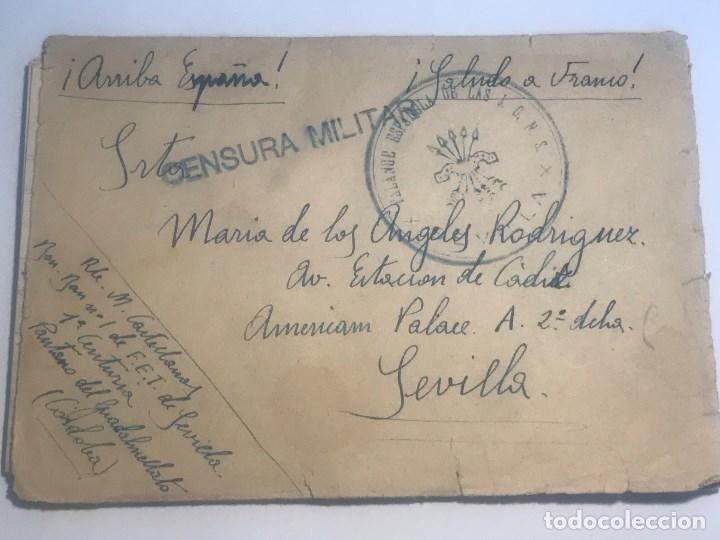 ¡Arriba España! ¡Saludo a Franco!
CENSURA MILITAR
FALANGE ESPAÑOLA DE LAS J.O.N.S.
Srta
Maria de los Angeles Rodriguez.
Av. Estacion de Cádiz.
American Palace. A. 2º dcha.
Sevilla.
Rte. M. Castellanos
Bon. nº 1 de F.E.T. de Sevilla.
1ª Centuria
Pantano del Guadalmellato
(Córdoba)
todocoleccion